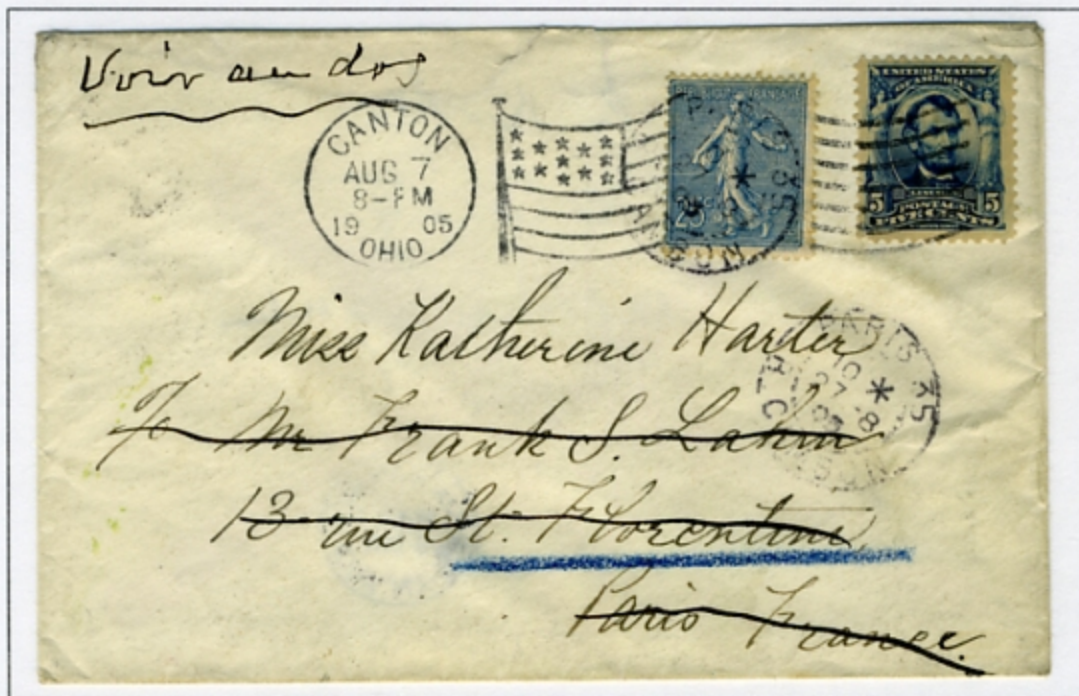 Voir au dos
CANTON
AUG 7
8-PM
1905
OHIO
REPUBLIQUE FRANÇAISE
25
UNITED STATES
OF AMERICA
5 5
POSTAGE
FIVE CENTS
Miss Katherine Harter
Mr Frank S. Lahm
13 rue St. Florentine
Paris France.
PARIS